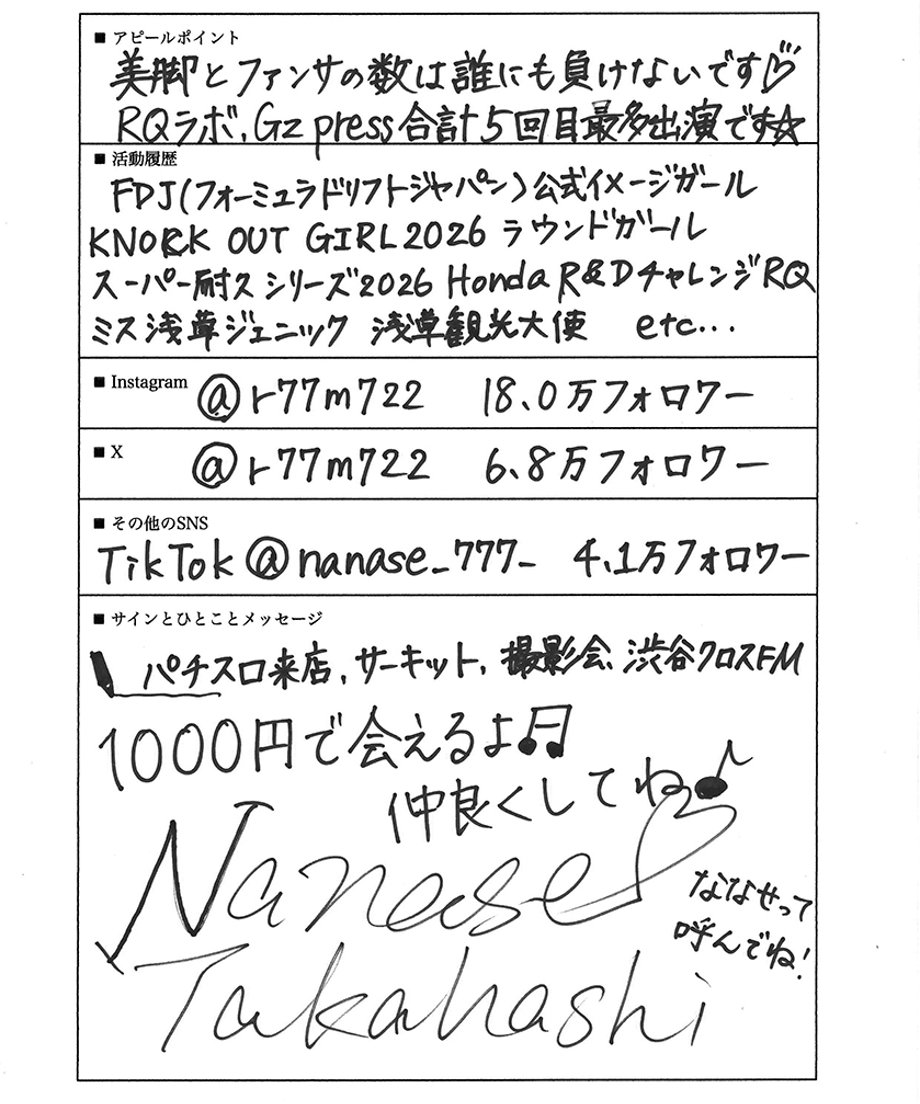 ■ アピールポイント
美脚とファンサの数は誰にも負けないです♡
RQラボ、Gz press合計5回目最多出演です☆
■ 活動履歴
FDJ(フォーミュラドリフトジャパン)公式イメージガール
KNOCK OUT GIRL2026 ラウンドガール
スーパー耐久シリーズ2026 Honda R&DチャレンジRQ
ミス浅草ジェニック 浅草観光大使 etc...
■ Instagram @r77m722 18.0万フォロワー
■ X @r77m722 6.8万フォロワー
■ その他のSNS
TikTok @nanase_777_ 4.1万フォロワー
■ サインとひとことメッセージ
パチスロ来店、サーキット、撮影会、渋谷クロスFM
1000円で会えるよ♫
仲良くしてね♪
Nanase♡
Takahashi
ななせって
呼んでね!